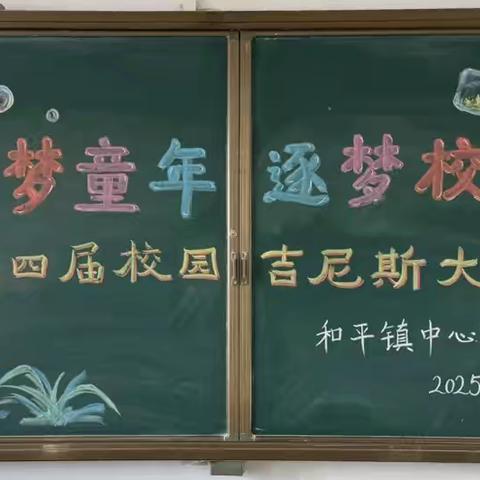 梦童年 逐梦校
四届校园吉尼斯大
和平镇中心
2025